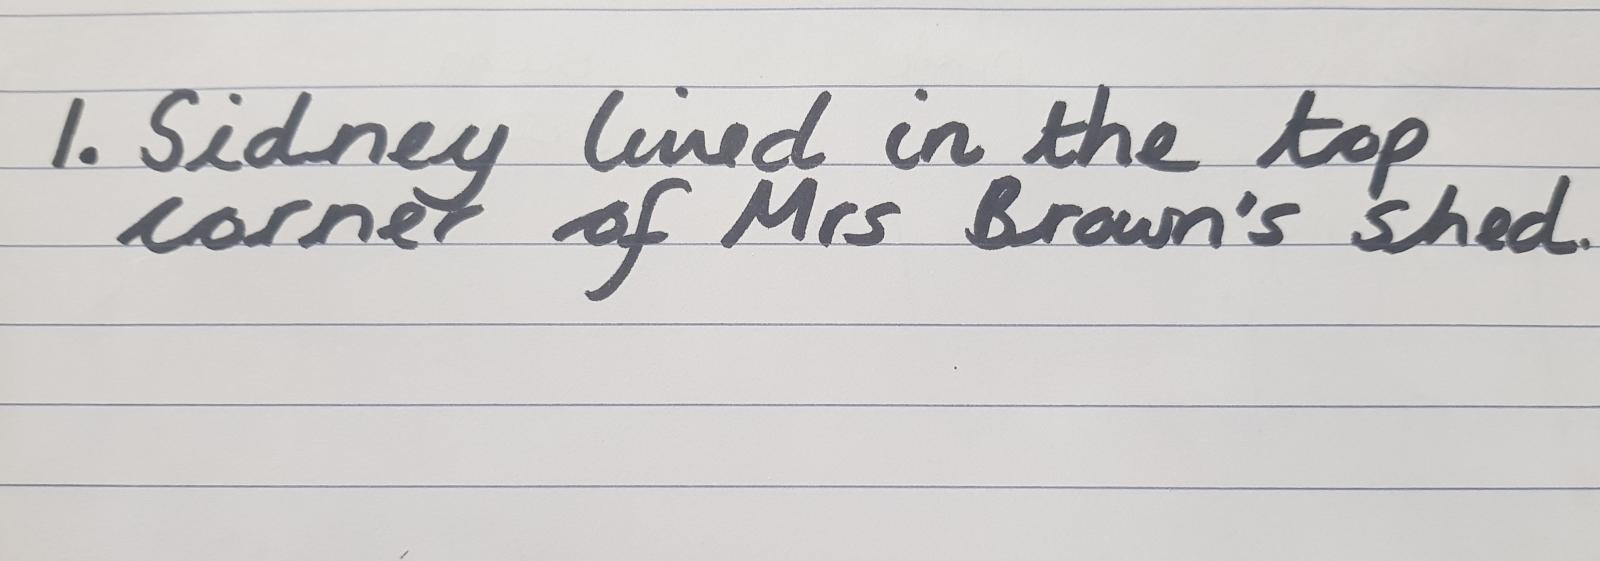 1. Sidney lived in the top
corner of Mrs Brown's shed.